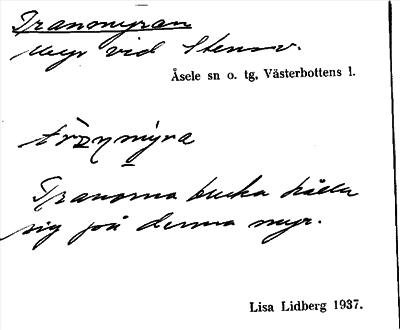 Tranmyran
Myr vid Stensv.
Åsele sn o. tg, Västerbottens l.
trɔnmyra
Tranorna bruka hålla
sig på denna myr.
Lisa Lidberg 1937.